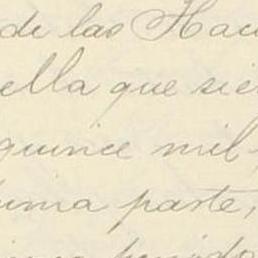 de las Hac
ella que sie
quince mil
ima parte,